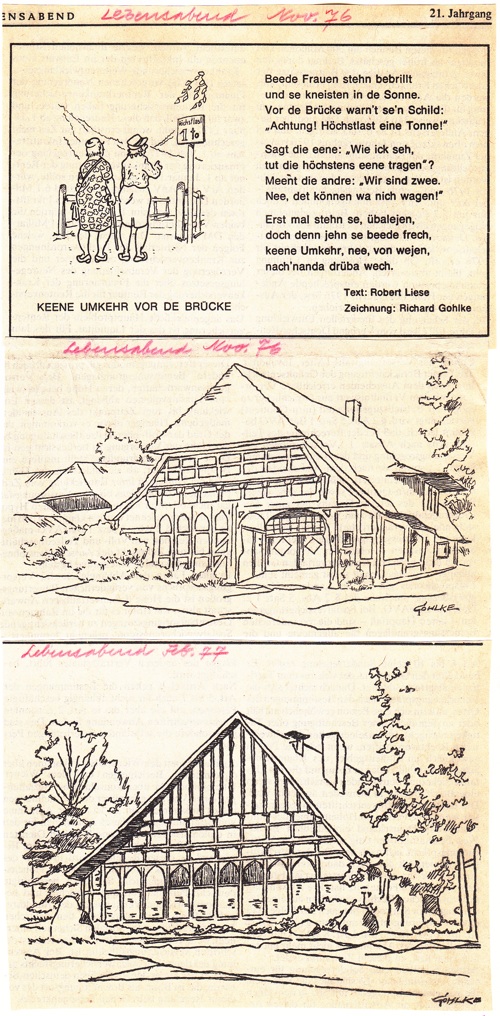 ENSABEND Lebensabend Nov. 76 21. Jahrgang
Höchstlast
1 to
Beede Frauen stehn bebrillt
und se kneisten in de Sonne.
Vor de Brücke warn't se'n Schild:
„Achtung! Höchstlast eine Tonne!"
Sagt die eene: „Wie ick seh,
tut die höchstens eene tragen"?
Meent die andre: „Wir sind zwee.
Nee, det können wa nich wagen!"
Erst mal stehn se, übalejen,
doch denn jehn se beede frech,
keene Umkehr, nee, von wejen,
nach'nanda drüba wech.
Text: Robert Liese
Zeichnung: Richard Gohlke
KEENE UMKEHR VOR DE BRÜCKE
Lebensabend Nov. 76
GOHLKE
Lebensabend Feb. 77
GOHLKE